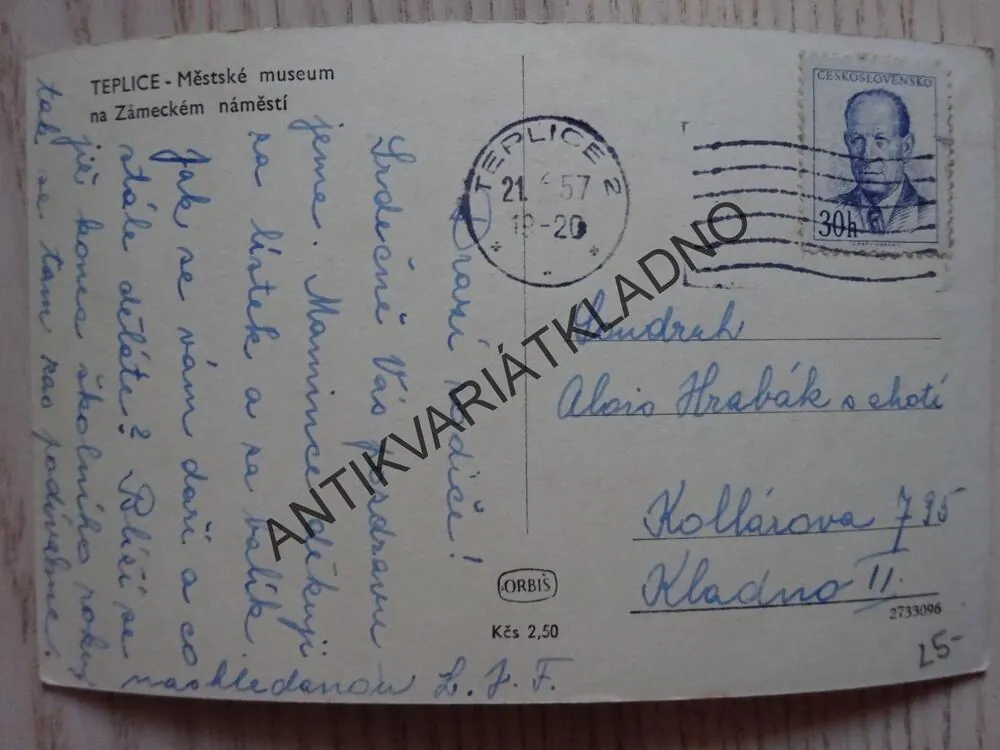 TEPLICE - Městské museum
na Zámeckém náměstí
TEPLICE 2
21. 57
19-20
ČESKOSLOVENSKO
30h
Drazí rodiče!
Srdečně Vás pozdravu-
jeme. Mamince děkuji
za lístek a za balík.
Jak se vám daří a co
stále děláte? Blíží se
již konec školního roku,
tak se tam zas podíváme.
naschledanou L. J. F.
Soudruh
Alois Hrabák s chotí
Kollárova 795
Kladno II.
ORBIS
Kčs 2,50
2733096
25-
ANTIKVARIÁTKLADNO